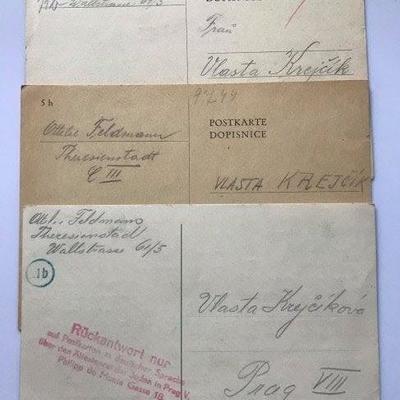 Wallstrasse 61/5
Frau
Vlasta Krejčik
5 h
9.7.44
Ottilie Feldmann
Theresienstadt
C III
POSTKARTE
DOPISNICE
VLASTA KREJČIK
Feldmann
Theresienstadt
Wallstrasse 61/5
1b
Vlasta Krejčiková
Prag VIII
Rückantwort nur
auf Postkarten in deutscher Sprache
über den Ältestenrat der Juden in Prag V.
Philipp de Monte Gasse 18